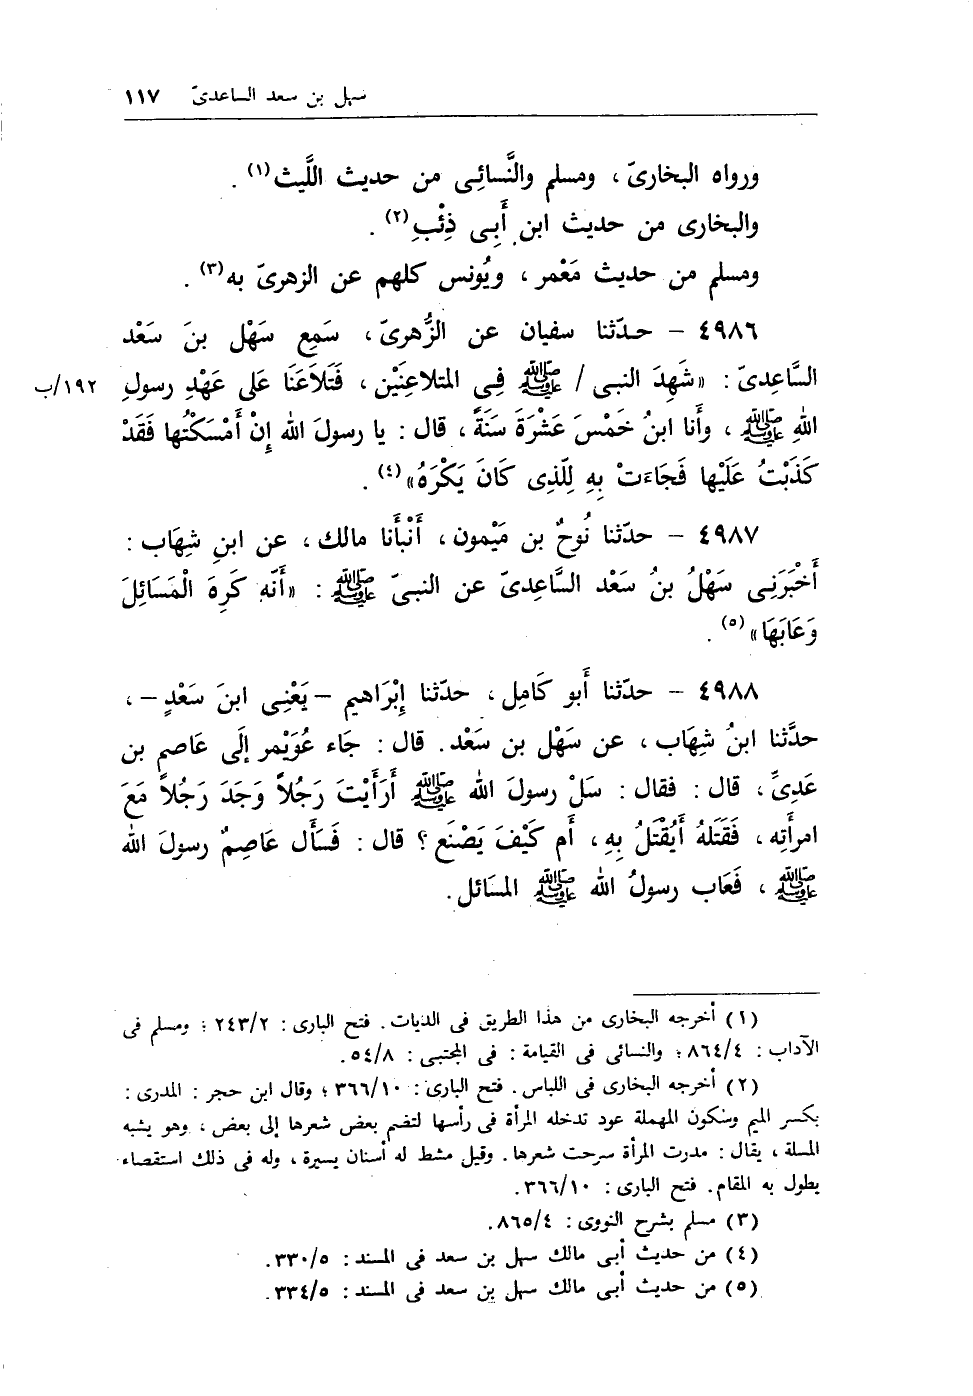 سهل بن سعد الساعدىّ ١١٧
ورواه البخارىّ ، ومسلم والنَّسائِى من حديث اللَّيث(١) .
والبخارى من حديث ابن أَبِى ذِئْبِ(٢) .
ومسلم من حديث مَعْمر ، ويُونس كلهم عن الزهرىّ به(٣) .
٤٩٨٦ – حدّثنا سفيان عن الزُّهرىّ ، سَمِع سَهْل بنَ سَعْد
السَّاعِدىّ : «شَهِدَ النبى / ﷺ فِى المتلاعِنَيْن ، فَتَلاَعَنَا عَلى عَهْدِ رسولِ ١٩٢/ب
اللهِ ﷺ ، وأَنا ابنُ خَمْسَ عَشْرَةَ سَنَةً ، قال : يا رسولَ الله إِنْ أَمْسَكْتُها فَقَدْ
كَذَبْتُ عَلَيْها فَجَاءَتْ بِهِ لِلّذِى كَانَ يَكْرَهُ»(٤) .
٤٩٨٧ – حدّثنا نُوحٌ بن مَيْمون ، أَنْبأَنا مالك ، عن ابنِ شِهَاب :
أَخْبَرَنِى سَهْلُ بنُ سَعْد السَّاعِدىّ عن النبىّ ﷺ : «أَنّه كَرِهَ الْمَسَائِلَ
وَعَابَهَا»(٥) .
٤٩٨٨ – حدّثنا أَبو كَامِل ، حدّثنا إِبْرَاهيم –يَعْنِى ابنَ سَعْدٍ– ،
حدَّثنا ابنُ شِهَاب ، عن سَهْل بن سَعْد . قال : جَاء عُوَيْمر إِلَى عَاصم بن
عَدِىِّ ، قال : فقال : سَلْ رسولَ الله ﷺ أَرَأَيْتَ رَجُلاً وَجَدَ رَجُلاً مَعَ
امرأَتِه ، فَقَتَلهُ أَيُقْتَلُ بِهِ ، أَم كَيْفَ يَصْنَع ؟ قال : فَسَأَل عَاصِمٌ رسولَ الله
ﷺ ، فَعَاب رسولُ الله ﷺ المسَائل .
(١) أخرجه البخارى من هذا الطريق فى الديات . فتح البارى : ٢٤٣/٢ ؛ ومسلم فى
الآداب : ٨٦٤/٤ ؛ والنسائى فى القيامة : فى المجتبى : ٥٤/٨.
(٢) أخرجه البخارى فى اللباس . فتح البارى : ٣٦٦/١٠ ؛ وقال ابن حجر : المدرى :
بكسر الميم وسكون المهملة عود تدخله المرأة فى رأسها لتضم بعض شعرها إلى بعض ، وهو يشبه
المسلة ، يقال : مدرت المرأة سرحت شعرها . وقيل مشط له أسنان يسيرة ، وله فى ذلك استقصاء
يطول به المقام . فتح البارى : ٣٦٦/١٠.
(٣) مسلم بشرح النووى : ٨٦٥/٤.
(٤) من حديث أبى مالك سهل بن سعد فى المسند : ٣٣٠/٥.
(٥) من حديث أبى مالك سهل بن سعد فى المسند : ٣٣٤/٥.